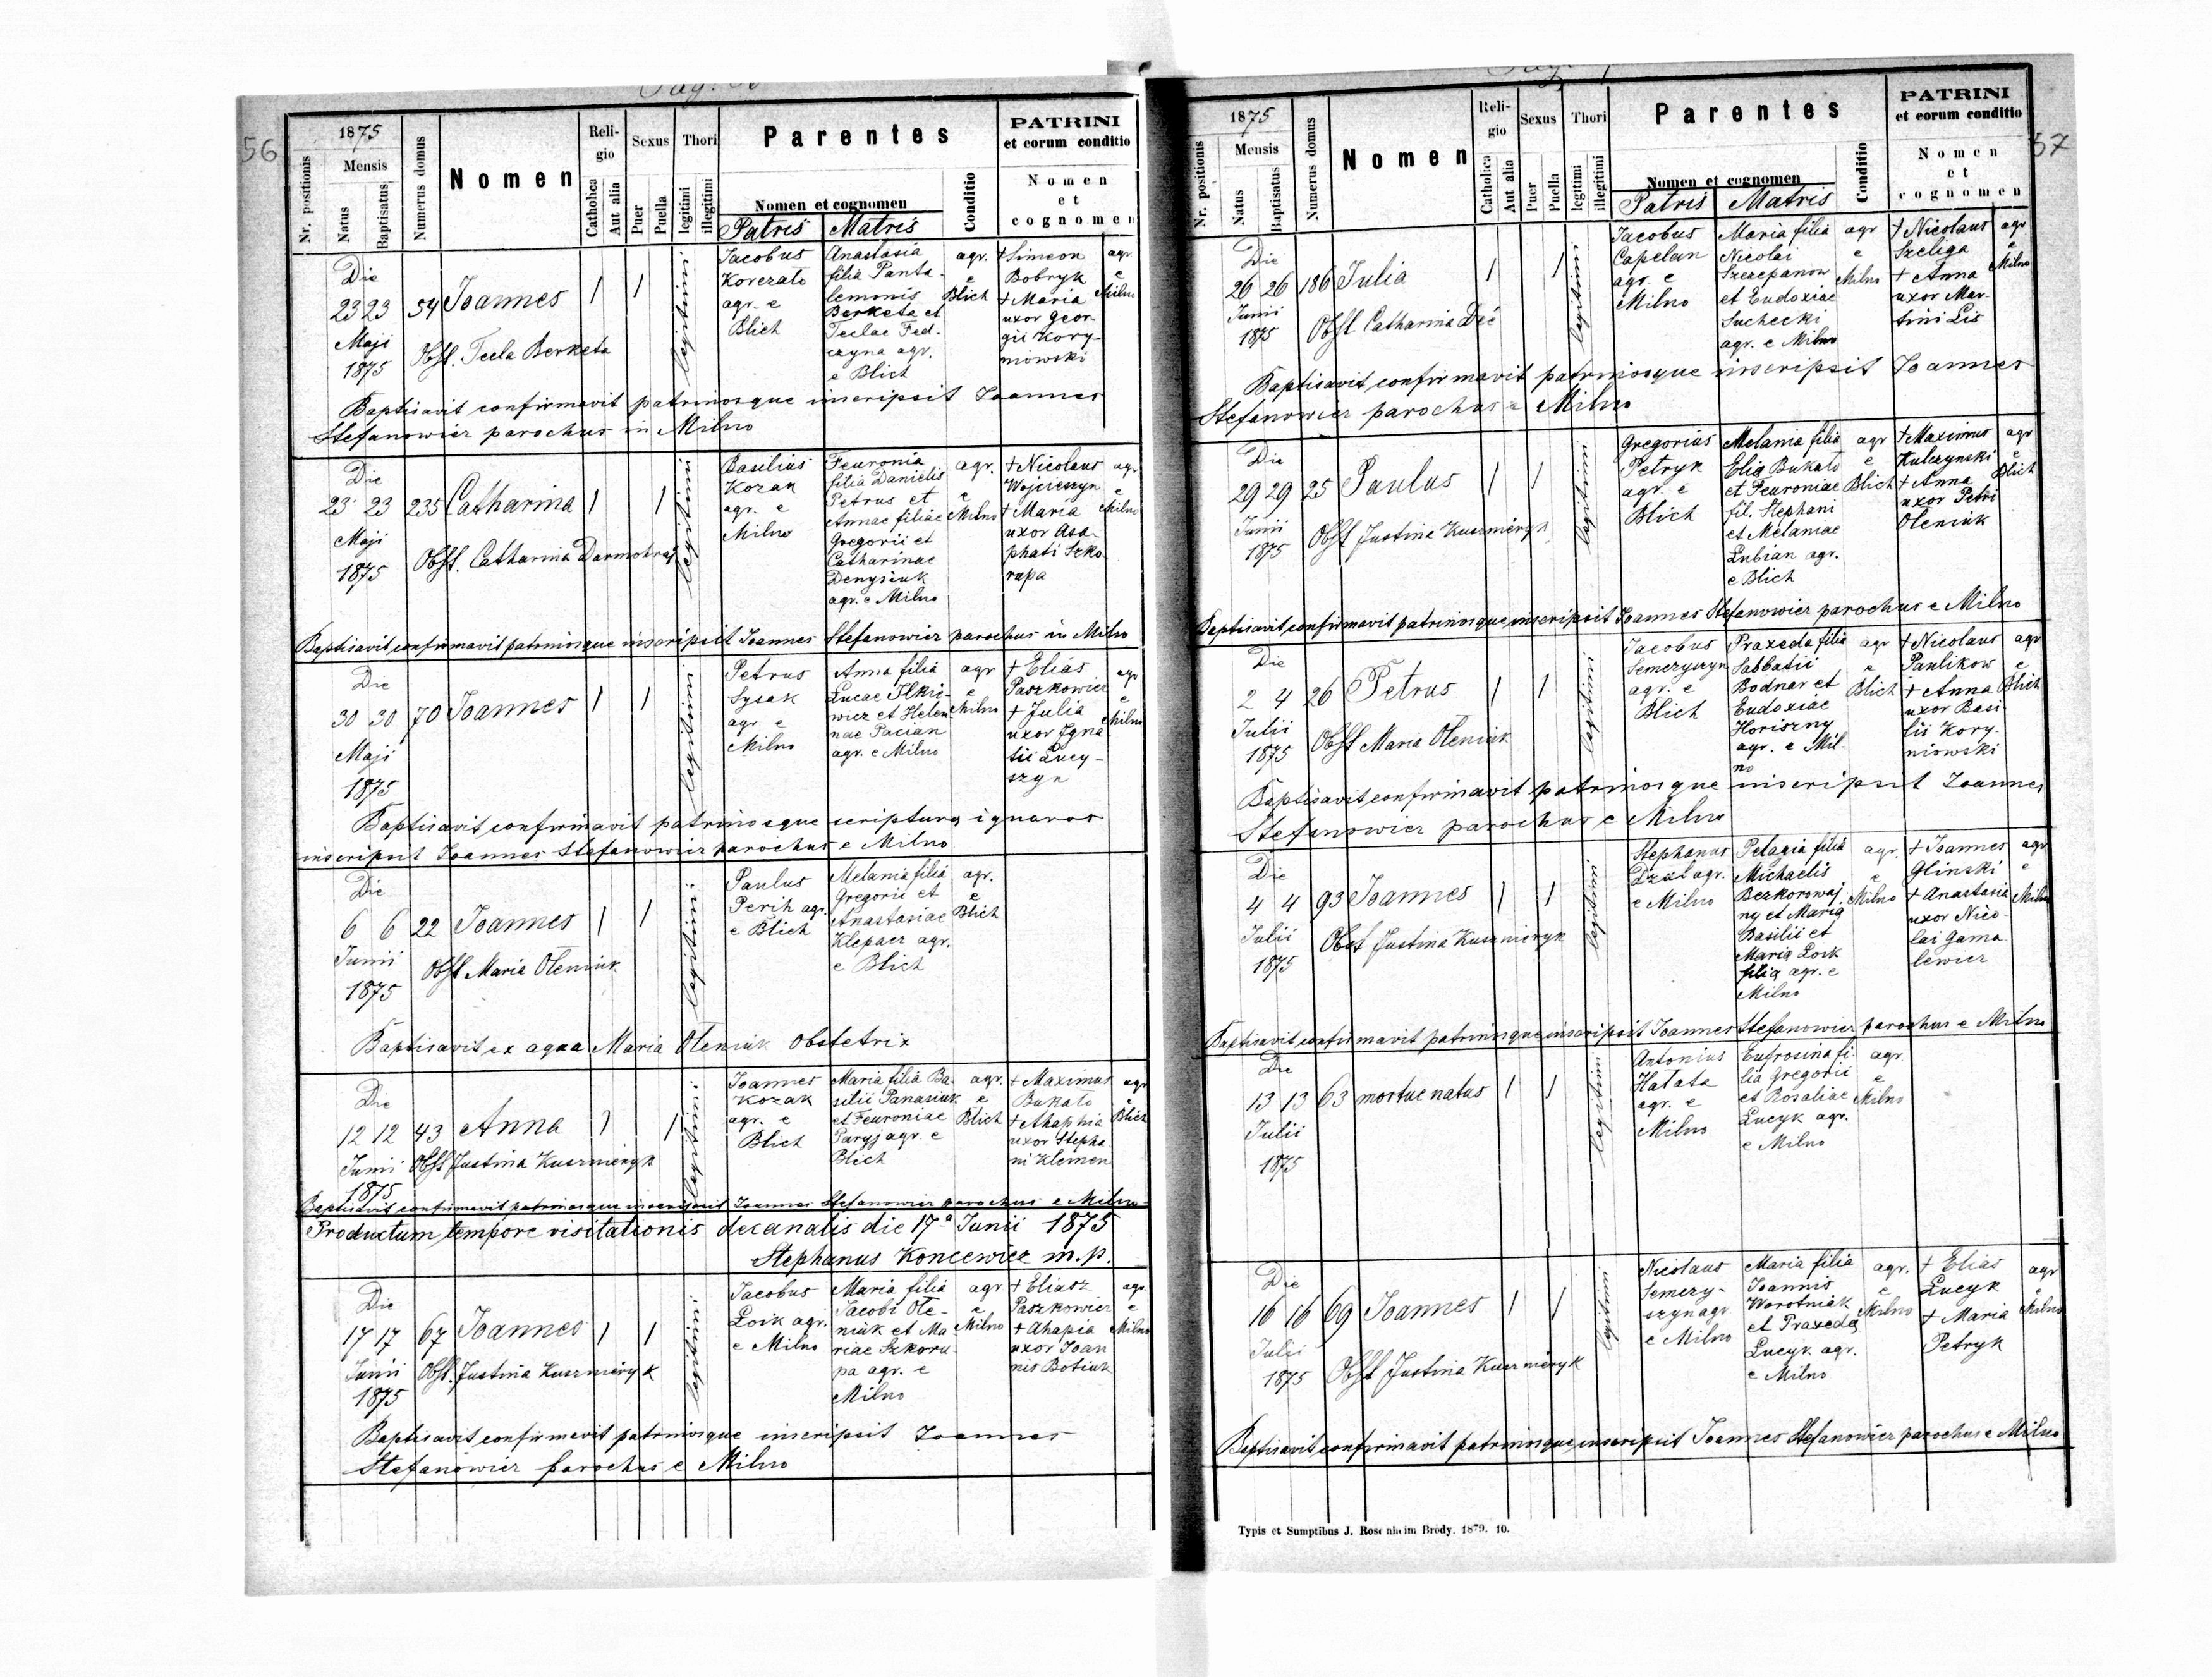 56
1875
Mensis
Nr. positionis
Natus
Baptisatus
Numerus domus
Nomen
Reli-
gio
Catholica
Aut alia
Sexus
Puer
Puella
Thori
legitimi
illegitimi
Parentes
Nomen et cognomen
Patris Matris
Conditio
PATRINI
et eorum conditio
Nomen
et
cognomen
Die
23 23 54 Joannes 1 1
Maji
1875
Obst. Tecla Berketa
legitimi
Jacobus
Korczato
agr. e
Blich
Anastasia
filia Panta-
lemonis
Berketa et
Teclae Fed-
czyna agr.
e Blich
agr.
e
Blich
† Simeon
Bobryk
† Maria
uxor Geor-
gii Kory-
niowski
agr
e
Milno
Baptisavit confirmavit patrinosque inscripsit Joannes
Stefanowicz parochus in Milno
Die
23 23 235 Catharina 1 1
Maji
1875
Obst. Catharina Darmohraj
legitimi
Basilius
Kozak
agr. e
Milno
Feuronia
filia Danielis
Petrus et
Annae filiae
Gregorii et
Catharinae
Denysiuk
agr. e Milno
agr.
e
Milno
† Nicolaus
Wojcieszyn
† Maria
uxor Asa-
phati Szko-
rupa
agr
e
Milno
Baptisavit, confirmavit patrinosque inscripsit Joannes Stefanowicz parochus in Milno
Die
30 30 70 Joannes 1 1
Maji
1875
legitimi
Petrus
Sysak
agr e
Milno
Anna filia
Lucae Ilkie-
wicz et Helen-
nae Pacian
agr. e Milno
agr
e
Milno
† Elias
Paszkowicz
† Julia
uxor Igna
tii Lucy-
szyn
agr
e
Milno
Baptisavit confirmavit patrinosque scriptura ignaros
inscripsit Joannes Stefanowicz parochus e Milno
Die
6 6 22 Joannes 1 1
Junii
1875
Obst Maria Oleniuk
legitimi
Paulus
Perih agr.
e Blich
Melania filia
Gregorii et
Anastasiae
Klepacz agr.
e Blich
agr.
e
Blich
Baptisavit ex aqua Maria Oleniuk Obstetrix
Die
12 12 43 Anna 1 1
Junii
1875
Obst Justina Kuszmieryk
legitimi
Joannes
Kozak
agr. e
Blich
Maria filia Ba-
silii Panasiuk
et Feuroniae
Paryj agr. e
Blich
agr.
e
Blich
† Maximus
Bukato
† Ahaphia
uxor Stepha-
ni Klemen
agr
e
Blich
Baptisavit confirmavit patrinosque inscripsit Joannes Stefanowicz parochus e Milno
Productum tempore visitationis decanalis die 17ª Junii 1875
Stephanus Koncewicz m.p.
Die
17 17 67 Joannes 1 1
Junii
1875
Obst. Justina Kuszmieryk
legitimi
Jacobus
Loik agr.
e Milno
Maria filia
Jacobi Ole-
niuk et Ma
riae Szkoru-
pa agr. e
Milno
agr
e
Milno
† Eliasz
Paszkowicz
† Ahapia
uxor Joan
nis Botiuk
agr.
e
Milno
Baptisavit, confirmavit patrinosque inscripsit Joannes
Stefanowicz parochus e Milno
57
1875
Mensis
Nr. positionis
Natus
Baptisatus
Numerus domus
Nomen
Reli-
gio
Catholica
Aut alia
Sexus
Puer
Puella
Thori
legitimi
illegitimi
Parentes
Nomen et cognomen
Patris Matris
Conditio
PATRINI
et eorum conditio
Nomen
et
cognomen
Die
26 26 186 Julia 1 1
Junii
1875
Obst. Catharina Deć
legitimi
Jacobus
Capelan
agr. e
Milno
Maria filia
Nicolai
Szczepanow
et Eudoxiae
Suchecki
agr. e Milno
agr
e
Milno
† Nicolaus
Szeliga
† Anna
uxor Mar-
tini Lis
agr
e
Milno
Baptisavit, confirmavit patrinosque inscripsit Joannes
Stefanowicz parochus e Milno
Die
29 29 25 Paulus 1 1
Junii
1875
Obst Justina Kuszmieryk
legitimi
Gregorius
Petryk
agr. e
Blich
Melania filia
Elia Bukato
et Feuroniae
fil. Stephani
et Melaniae
Lubian agr.
e Blich
agr
e
Blich
† Maximus
Kulczynski
† Anna
uxor Petri
Oleniuk
agr
e
Blich
Baptisavit, confirmavit patrinosque inscripsit Joannes Stefanowicz parochus e Milno
Die
2 4 26 Petrus 1 1
Julii
1875
Obst Maria Oleniuk
legitimi
Jacobus
Semczyszyn
agr. e
Blich
Praxeda filia
Sabbatii
Bodnar et
Eudoxiae
Horiszny
agr. e Mil-
no
agr
e
Blich
† Nicolaus
Paulikow
† Anna
uxor Basi
lii Kory-
niowski
agr
e
Blich
Baptisavit confirmavit patrinosque inscripsit Joannes
Stefanowicz parochus e Milno
Die
4 4 93 Joannes 1 1
Julii
1875
Obst Justina Kuszmieryk
legitimi
Stephanus
Dzul agr.
e Milno
Pelagia filia
Michaelis
Bezkorowaj
ny et Maria
Basilii et
Maria Loik
filia agr. e
Milno
agr.
e
Milno
† Joannes
Glinski
† Anastasia
uxor Nico-
lai Gama-
lewicz
agr
e
Milno
Baptisavit, confirmavit patrinosque inscripsit Joannes Stefanowicz parochus e Milno
Die
13 13 63 mortue natus 1 1
Julii
1875
legitimi
Antonius
Hatata
agr. e
Milno
Eufrosina fi-
lia Gregorii
et Rosaliae
Lucyk agr.
e Milno
agr.
e
Milno
Die
16 16 69 Joannes 1 1
Julii
1875
Obst Justina Kuszmieryk
legitimi
Nicolaus
Semczy-
szyn agr
e Milno
Maria filia
Joannis
Worotniak
et Praxeda
Lucyk agr.
e Milno
agr.
e
Milno
† Elias
Lucyk
† Maria
Petryk
agr
e
Milno
Baptisavit, confirmavit patrinosque inscripsit Joannes Stefanowicz parochus e Milno
Typis et Sumptibus J. Rosenheim Brody. 1879. 10.